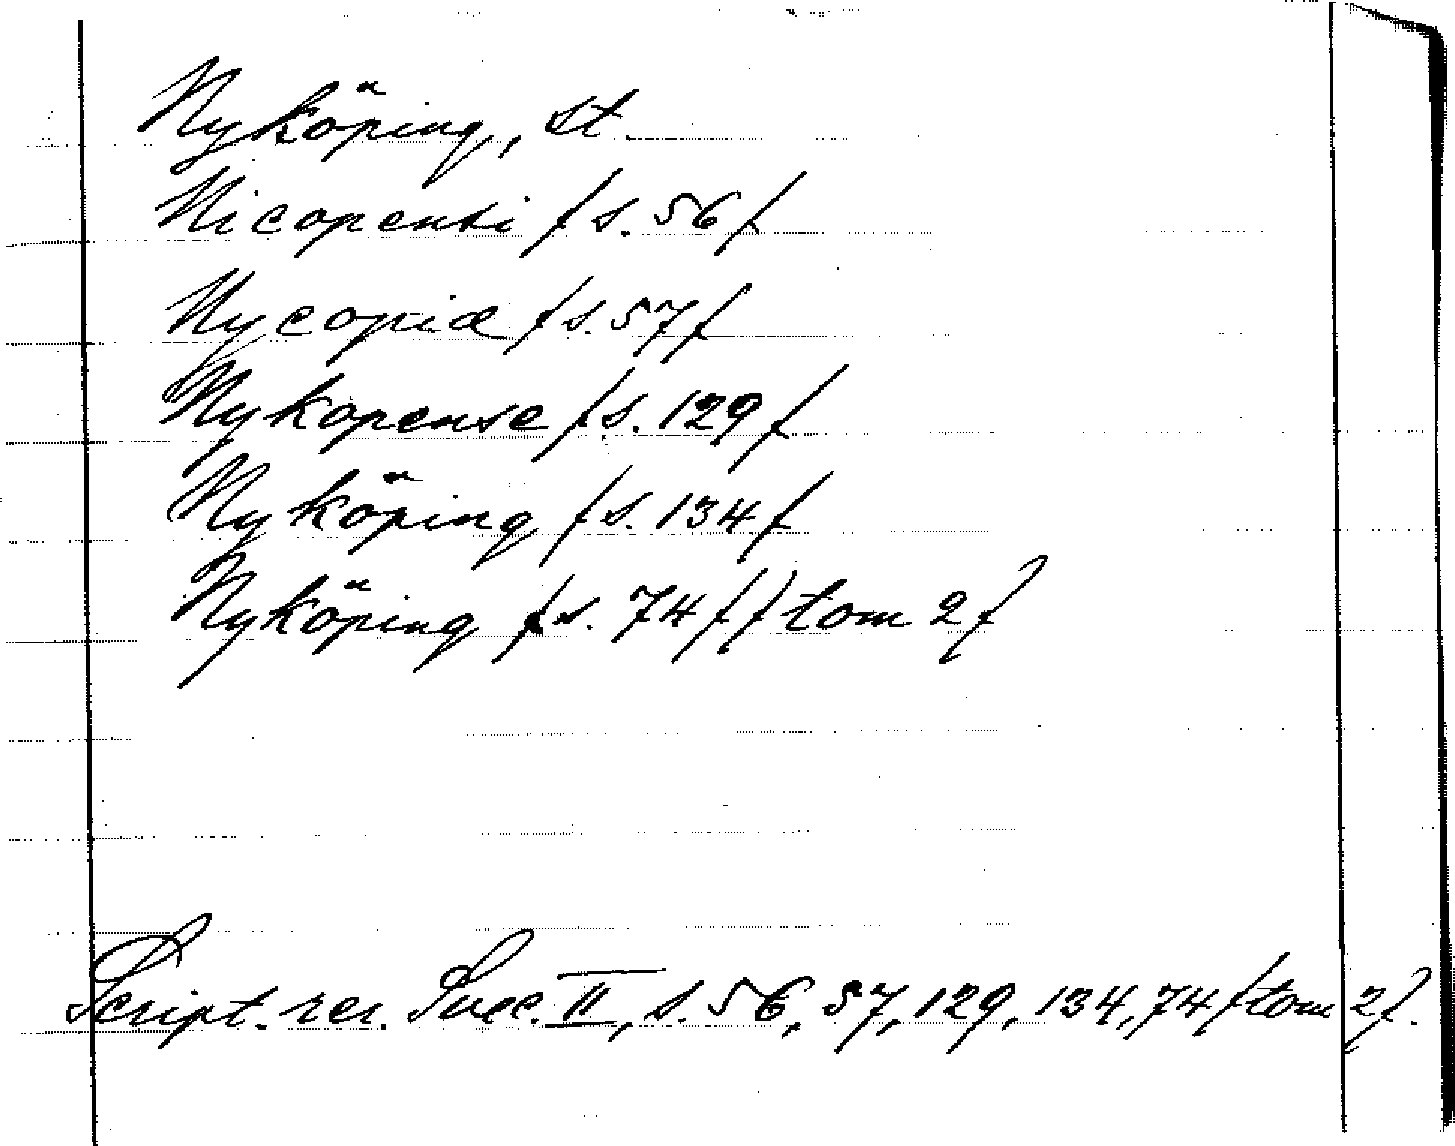 Nyköping, st.
Nicopensi /s. 56/
Nycopiæ /s. 57/
Nykopense /s. 129/
Nyköping /s. 134/
Nyköping /s. 74/ /tom 2/
Script. rer. Suec. II, s. 56, 57, 129, 134, 74 /tom 2/.